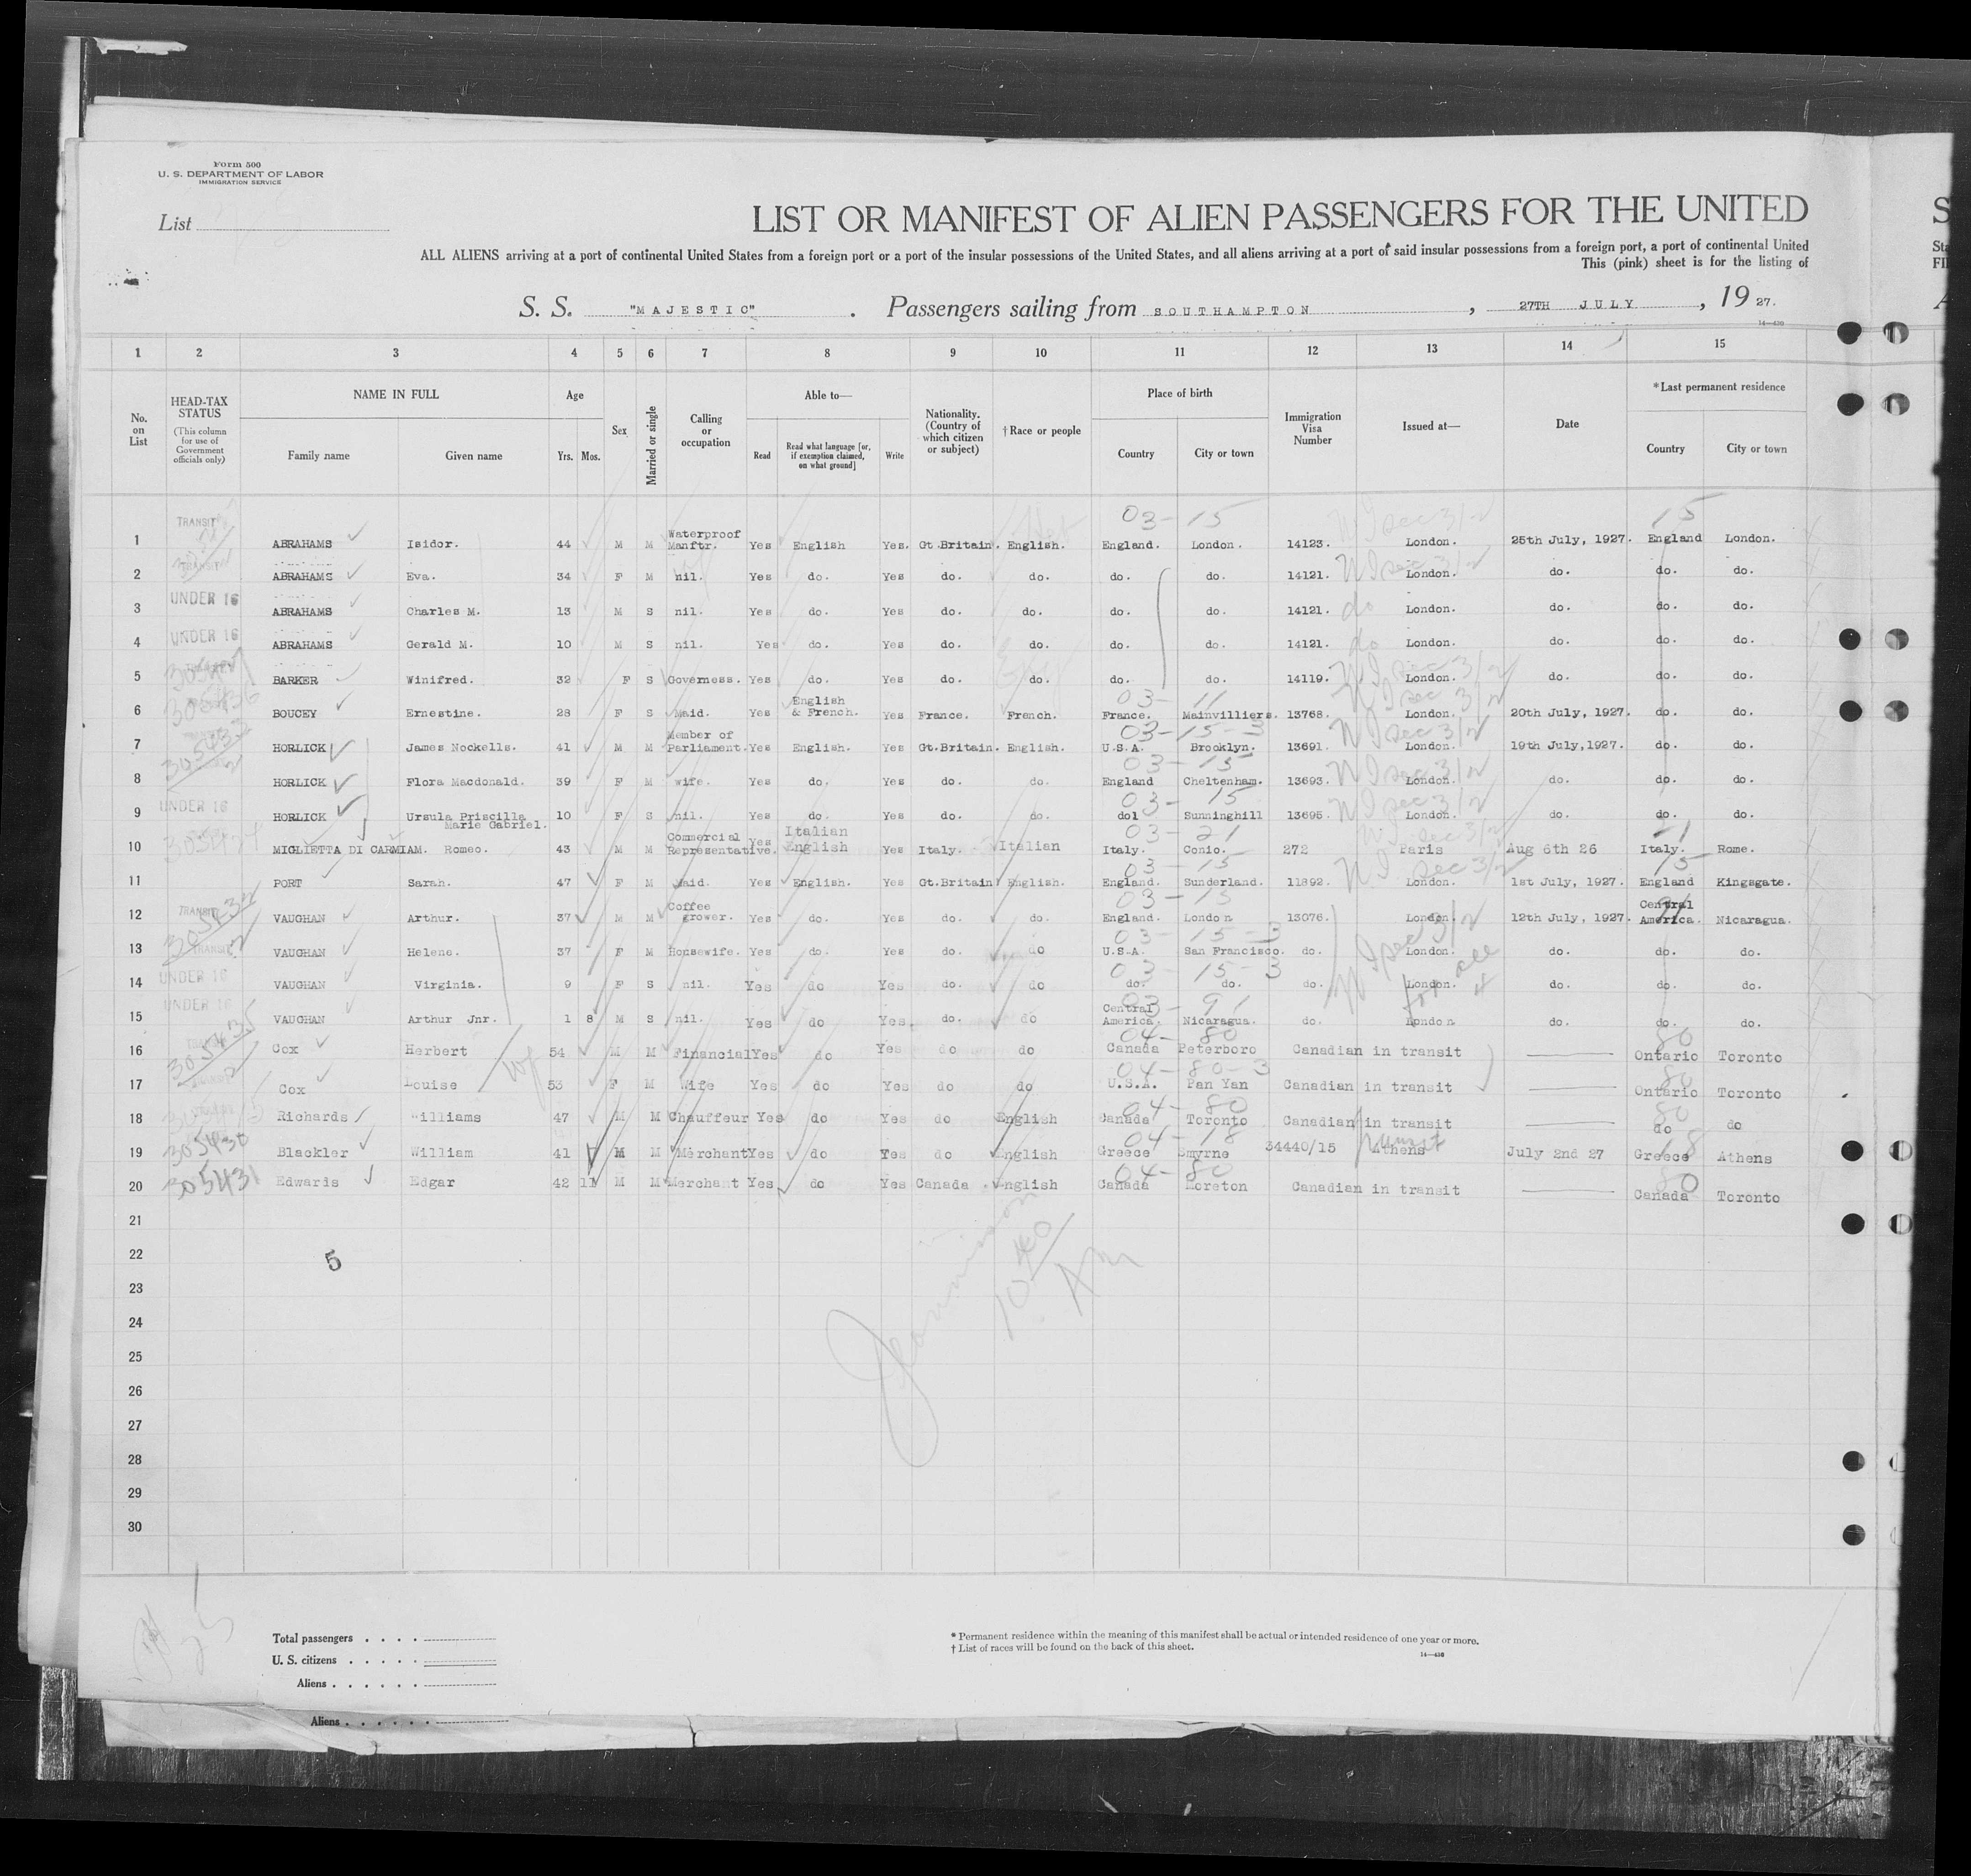 Form 500
U. S. DEPARTMENT OF LABOR
IMMIGRATION SERVICE
List
LIST OR MANIFEST OF ALIEN PASSENGERS FOR THE UNITED
ALL ALIENS arriving at a port of continental United States from a foreign port or a port of the insular possessions of the United States, and all aliens arriving at a port of said insular possessions from a foreign port, a port of continental United
This (pink) sheet is for the listing of
S. S. "MAJESTIC" . Passengers sailing from SOUTHAMPTON , 27TH JULY , 19 27.
14—430
1 2 3 4 5 6 7 8 9 10 11 12 13 14 15
No. on List
HEAD-TAX STATUS (This column for use of Government officials only)
NAME IN FULL
Family name Given name
Age
Yrs. Mos.
Sex
Married or single
Calling or occupation
Able to—
Read Read what language [or, if exemption claimed, on what ground] Write
Nationality. (Country of which citizen or subject)
† Race or people
Place of birth
Country City or town
Immigration Visa Number
Issued at—
Date
* Last permanent residence
Country City or town
03-15 15
1 TRANSIT ABRAHAMS Isidor. 44 M M Waterproof Manftr. Yes English Yes. Gt.Britain. English. England. London. 14123. London. 25th July, 1927. England London.
2 TRANSIT ABRAHAMS Eva. 34 F M nil. Yes do. Yes do. do. do. do. 14121. London. do. do. do.
3 UNDER 16 ABRAHAMS Charles M. 13 M S nil. Yes do. Yes do. do. do. do. 14121. do London. do. do. do.
4 UNDER 16 ABRAHAMS Gerald M. 10 M S nil. Yes do. Yes do. do. do. do. 14121. do London. do. do. do.
5 BARKER Winifred. 32 F S Governess. Yes do. Yes do. do. do. do. 14119. London. do. do. do.
03-11
6 305436 BOUCEY Ernestine. 28 F S Maid. Yes English & French. Yes France. French. France. Mainvilliers. 13768. London. 20th July, 1927. do. do.
03-15-3
7 305433 HORLICK James Nockells. 41 M M Member of Parliament. Yes English. Yes Gt.Britain. English. U.S.A. Brooklyn. 13691. London. 19th July,1927. do. do.
03-15
8 HORLICK Flora Macdonald. 39 F M wife. Yes do. Yes do. do. England Cheltenham. 13693. London. do. do. do.
03-15
9 UNDER 16 HORLICK Ursula Priscilla Marie Gabriel. 10 F S nil. Yes do. Yes do. do. dol Sunninghill 13695. London. do. do. do.
03-21 21
10 MIGLIETTA DI CARMIAM. Romeo. 43 M M Commercial Representative. Yes Italian English Yes Italy. Italian Italy. Conio. 272 Paris Aug 6th 26 Italy. Rome.
03-15 15
11 PORT Sarah. 47 F M Maid. Yes English. Yes Gt.Britain English. England. Sunderland. 11892. London. 1st July, 1927. England Kingsgate.
03-15
12 TRANSIT 305432 VAUGHAN Arthur. 37 M M Coffee grower. Yes do. Yes do. do. England. London 13076. London. 12th July, 1927. Central America. Nicaragua.
03-15-3
13 TRANSIT VAUGHAN Helene. 37 F M Housewife. Yes do. Yes do. do U.S.A. San Francisco. do. London. do. do. do.
03-15-3
14 UNDER 16 VAUGHAN Virginia. 9 F S nil. Yes do Yes do. do do. do. do. London. do. do. do.
03-91
15 UNDER 16 VAUGHAN Arthur Jnr. 1 8 M S nil. Yes do Yes. do. do Central America. Nicaragua. do. London do. do. do.
04-80 80
16 305435 Cox Herbert 54 M M Financial Yes do Yes do do Canada Peterboro Canadian in transit Ontario Toronto
04-80-3 80
17 Cox Louise 53 F M Wife Yes do Yes do do U.S.A. Pan Yan Canadian in transit Ontario Toronto
04-80 80
18 Richards Williams 47 M M Chauffeur Yes do Yes do English Canada Toronto Canadian in transit do do
04-18 18
19 305430 Blackler William 41 M M Merchant Yes do Yes do English Greece Smyrne 34440/15 Athens July 2nd 27 Greece Athens
04-80 80
20 305431 Edwards Edgar 42 11 M M Merchant Yes do Yes Canada English Canada Moreton Canadian in transit Canada Toronto
21
22
5
23
24
25
26
27
28
29
30
Total passengers
U. S. citizens
Aliens
Aliens
* Permanent residence within the meaning of this manifest shall be actual or intended residence of one year or more.
† List of races will be found on the back of this sheet.
14—430